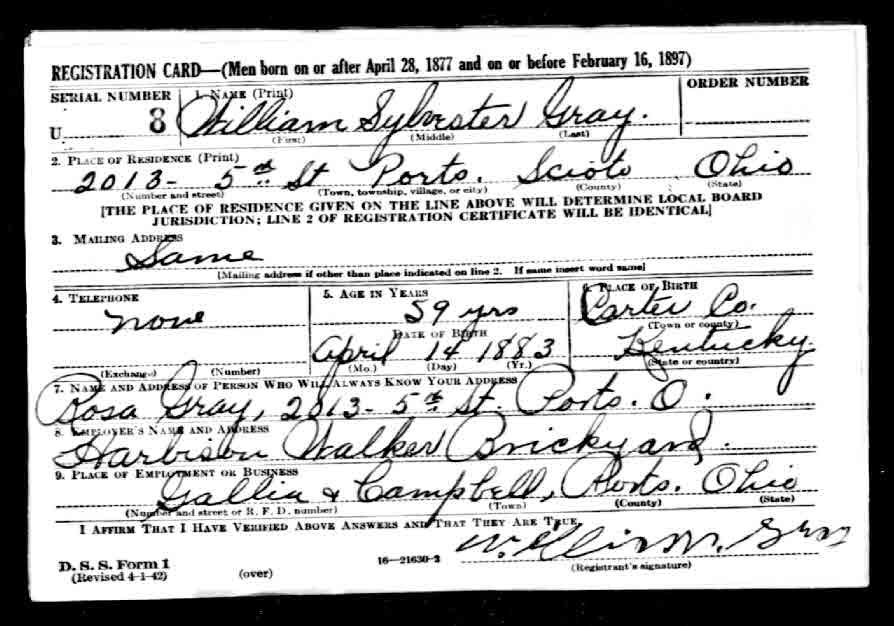 REGISTRATION CARD—(Men born on or after April 28, 1877 and on or before February 16, 1897)
SERIAL NUMBER 1. NAME (Print) ORDER NUMBER
U 8 William Sylvester Gray.
(First) (Middle) (Last)
2. PLACE OF RESIDENCE (Print)
2013- 5th St Ports. Scioto Ohio
(Number and street) (Town, township, village, or city) (County) (State)
[THE PLACE OF RESIDENCE GIVEN ON THE LINE ABOVE WILL DETERMINE LOCAL BOARD
JURISDICTION; LINE 2 OF REGISTRATION CERTIFICATE WILL BE IDENTICAL]
3. MAILING ADDRESS
Same
[Mailing address if other than place indicated on line 2. If same insert word same]
4. TELEPHONE 5. AGE IN YEARS 6. PLACE OF BIRTH
none 59 yrs Carter Co.
DATE OF BIRTH (Town or county)
April 14 1883 Kentucky
(Exchange) (Number) (Mo.) (Day) (Yr.) (State or country)
7. NAME AND ADDRESS OF PERSON WHO WILL ALWAYS KNOW YOUR ADDRESS
Rosa Gray, 2013- 5th St. Ports. O.
8. EMPLOYER'S NAME AND ADDRESS
Harbison Walker Brickyard.
9. PLACE OF EMPLOYMENT OR BUSINESS
Gallia & Campbell, Ports. Ohio
(Number and street or R. F. D. number) (Town) (County) (State)
I AFFIRM THAT I HAVE VERIFIED ABOVE ANSWERS AND THAT THEY ARE TRUE.
William Gray
D. S. S. Form 1 16—21630-2 (Registrant's signature)
(Revised 4-1-42) (over)